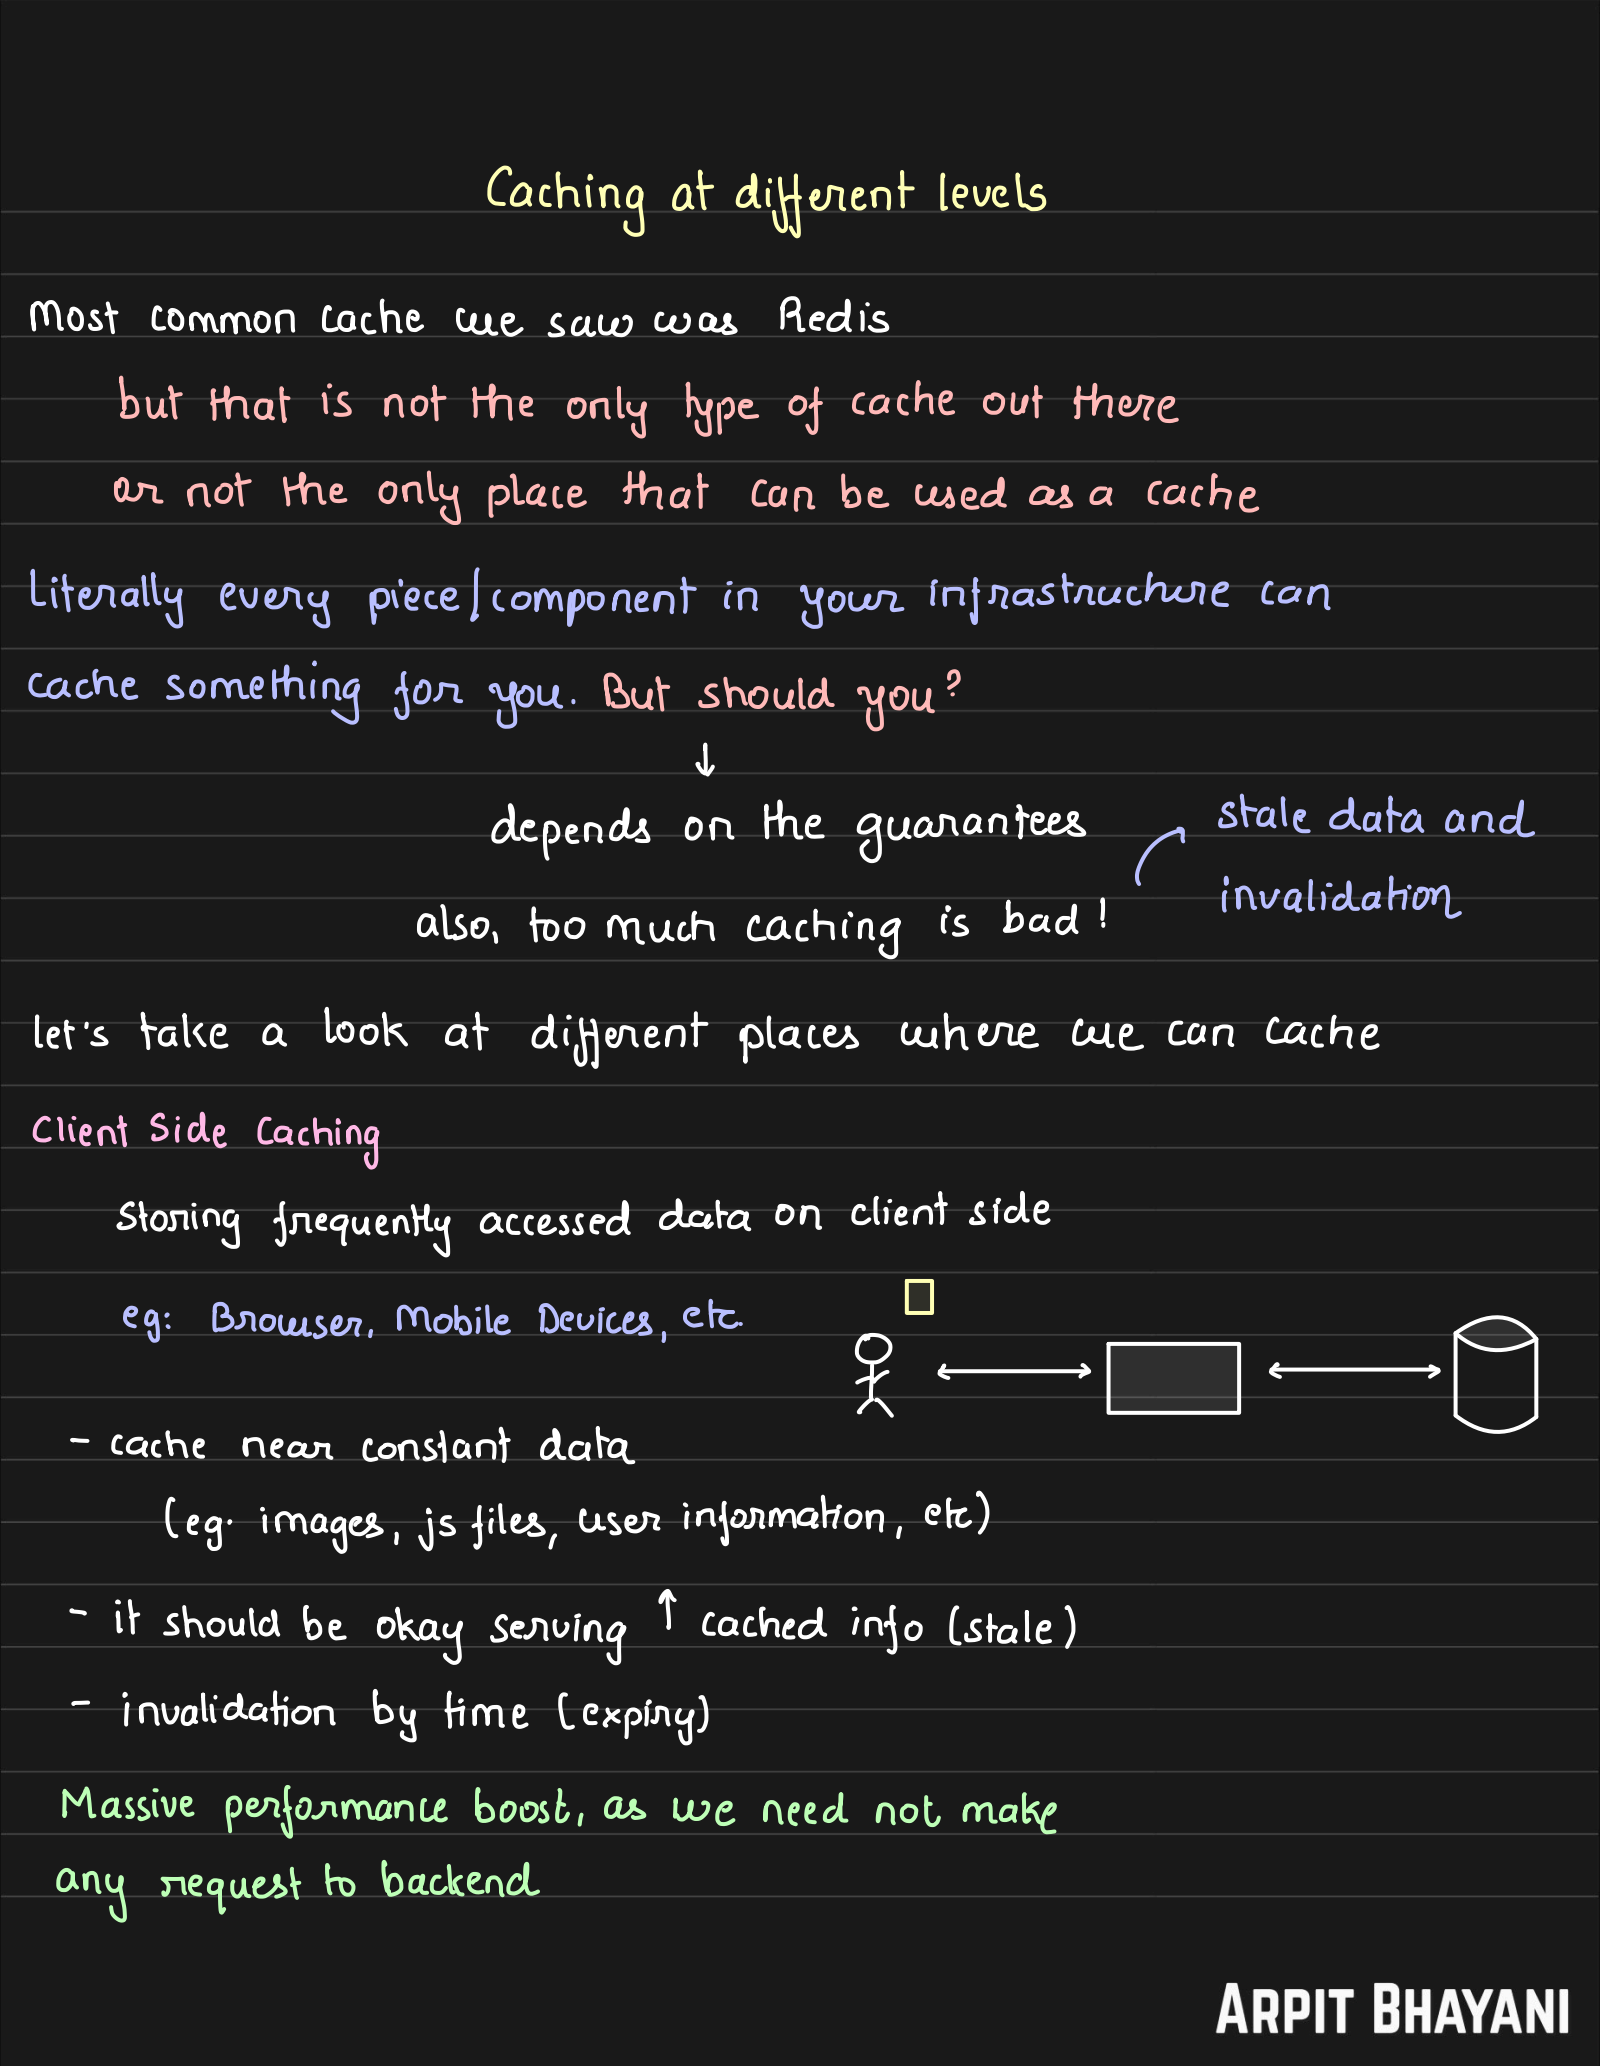 Caching at different levels
Most common cache we saw was Redis
but that is not the only type of cache out there
or not the only place that can be used as a cache
Literally every piece/component in your infrastructure can
cache something for you. But should you?
↓
depends on the guarantees
stale data and
invalidation
also, too much caching is bad!
let's take a look at different places where we can cache
Client Side Caching
Storing frequently accessed data on client side
eg: Browser, Mobile Devices, etc.
- cache near constant data
(eg. images, js files, user information, etc)
- it should be okay serving ↑ cached info (stale)
- invalidation by time (expiry)
Massive performance boost, as we need not make
any request to backend
ARPIT BHAYANI